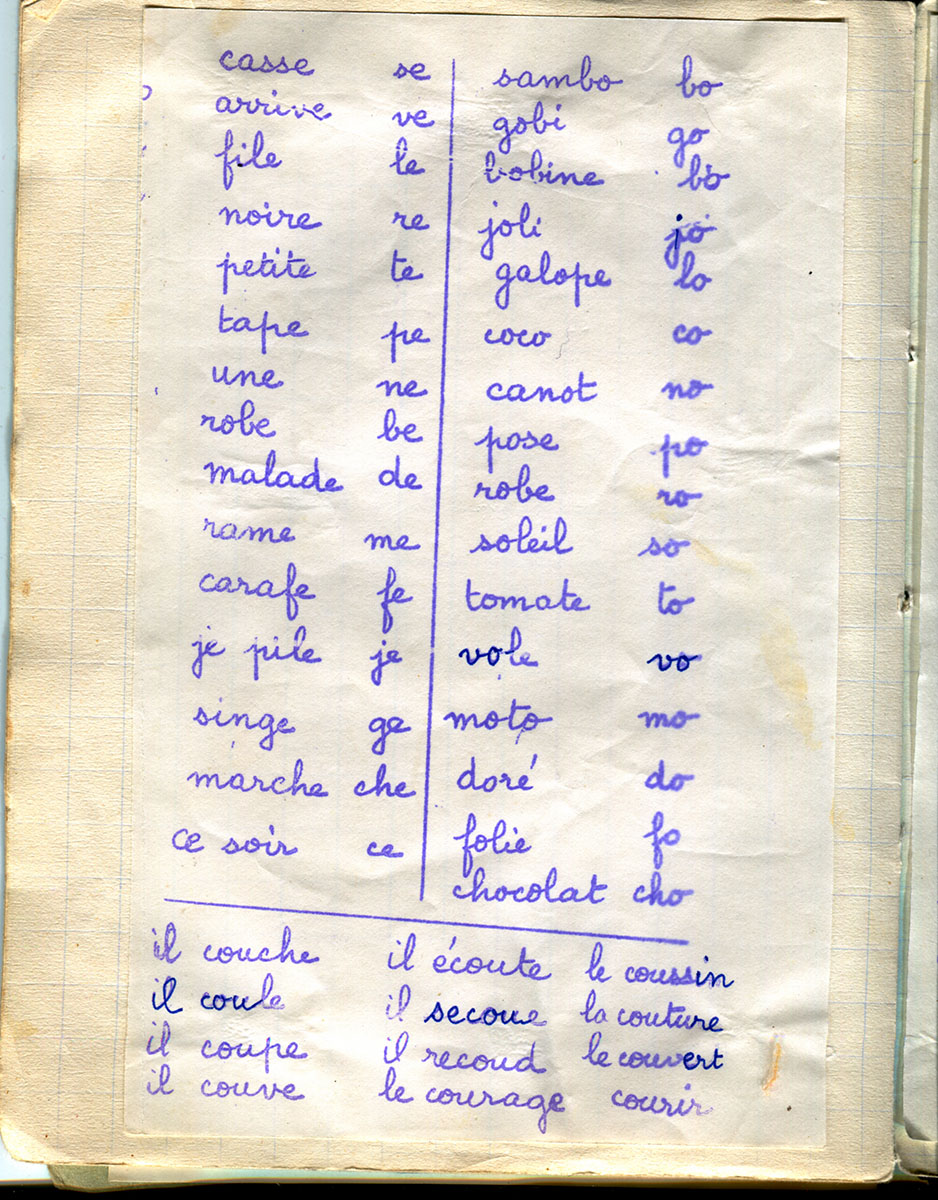 casse se sambo bo
arrive ve gobi go
file le bobine bo
noire re joli jo
petite te galope lo
tape pe coco co
une ne canot no
robe be pose po
malade de robe ro
rame me soleil so
carafe fe tomate to
je pile je vole vo
singe ge moto mo
marche che doré do
ce soir ce folie fo
chocolat cho
il couche il écoute le coussin
il coule il secoue la couture
il coupe il recoud le couvert
il couve le courage courir